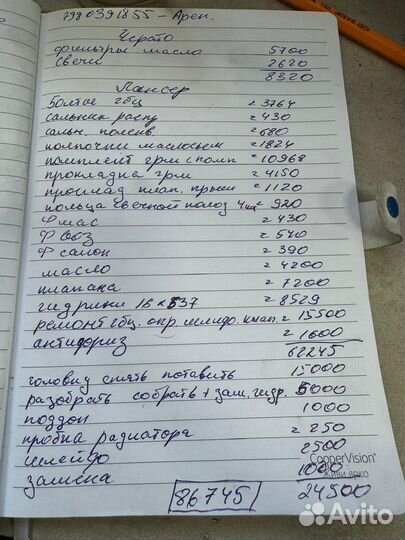 7980391855 - Арен.
Церато
фильтры масло 5700
свечи 2620
8320
Лансер
Болты гбц = 3764
сальник распр = 430
сальн. коленв = 680
колпочки маслосъем = 1824
комплект грм с помп = 10968
прокладка грм = 4150
проклад клап. крыш = 1120
кольца свечной колод 4шт = 920
Ф мас = 430
Ф воз = 540
Ф салон = 390
масло = 4200
клапана = 7200
гидрики 16 х 537 = 8529
ремонт гбц. опр. шлифо. клап. = 15500
антифриз = 1600
62245
головку снять поставить 15000
разобрать собрать + зам. гидр. 5000
поддон 1000
пробка радиатора = 250
шлифо 2500
замена 1000
86745 24500
CooperVision
Живи ярко
Avito